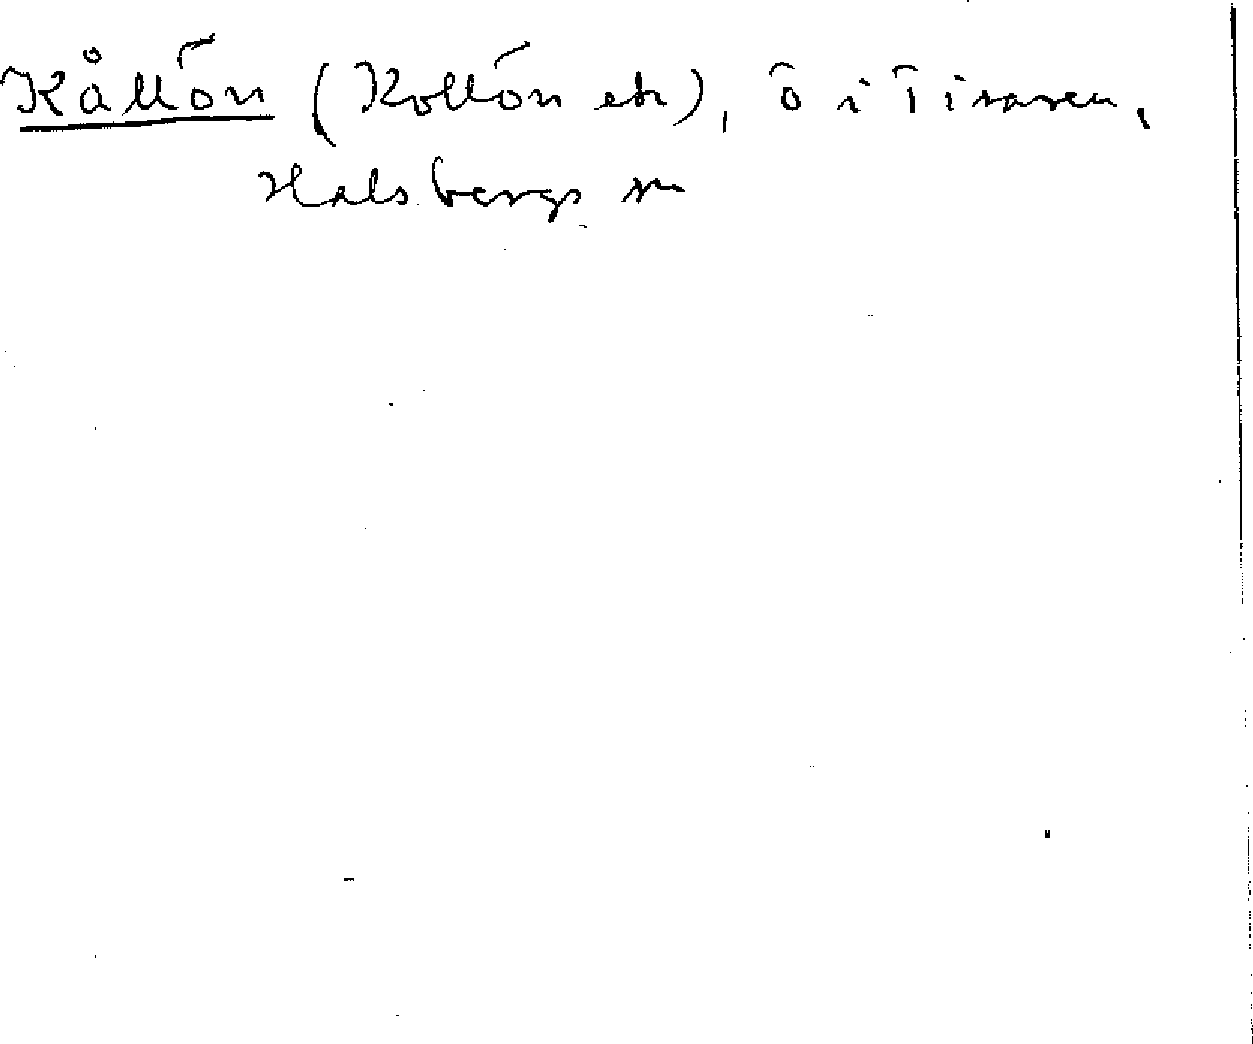 Kållön (Kollön etc), ö i Tisaren,
Halsbergs sn